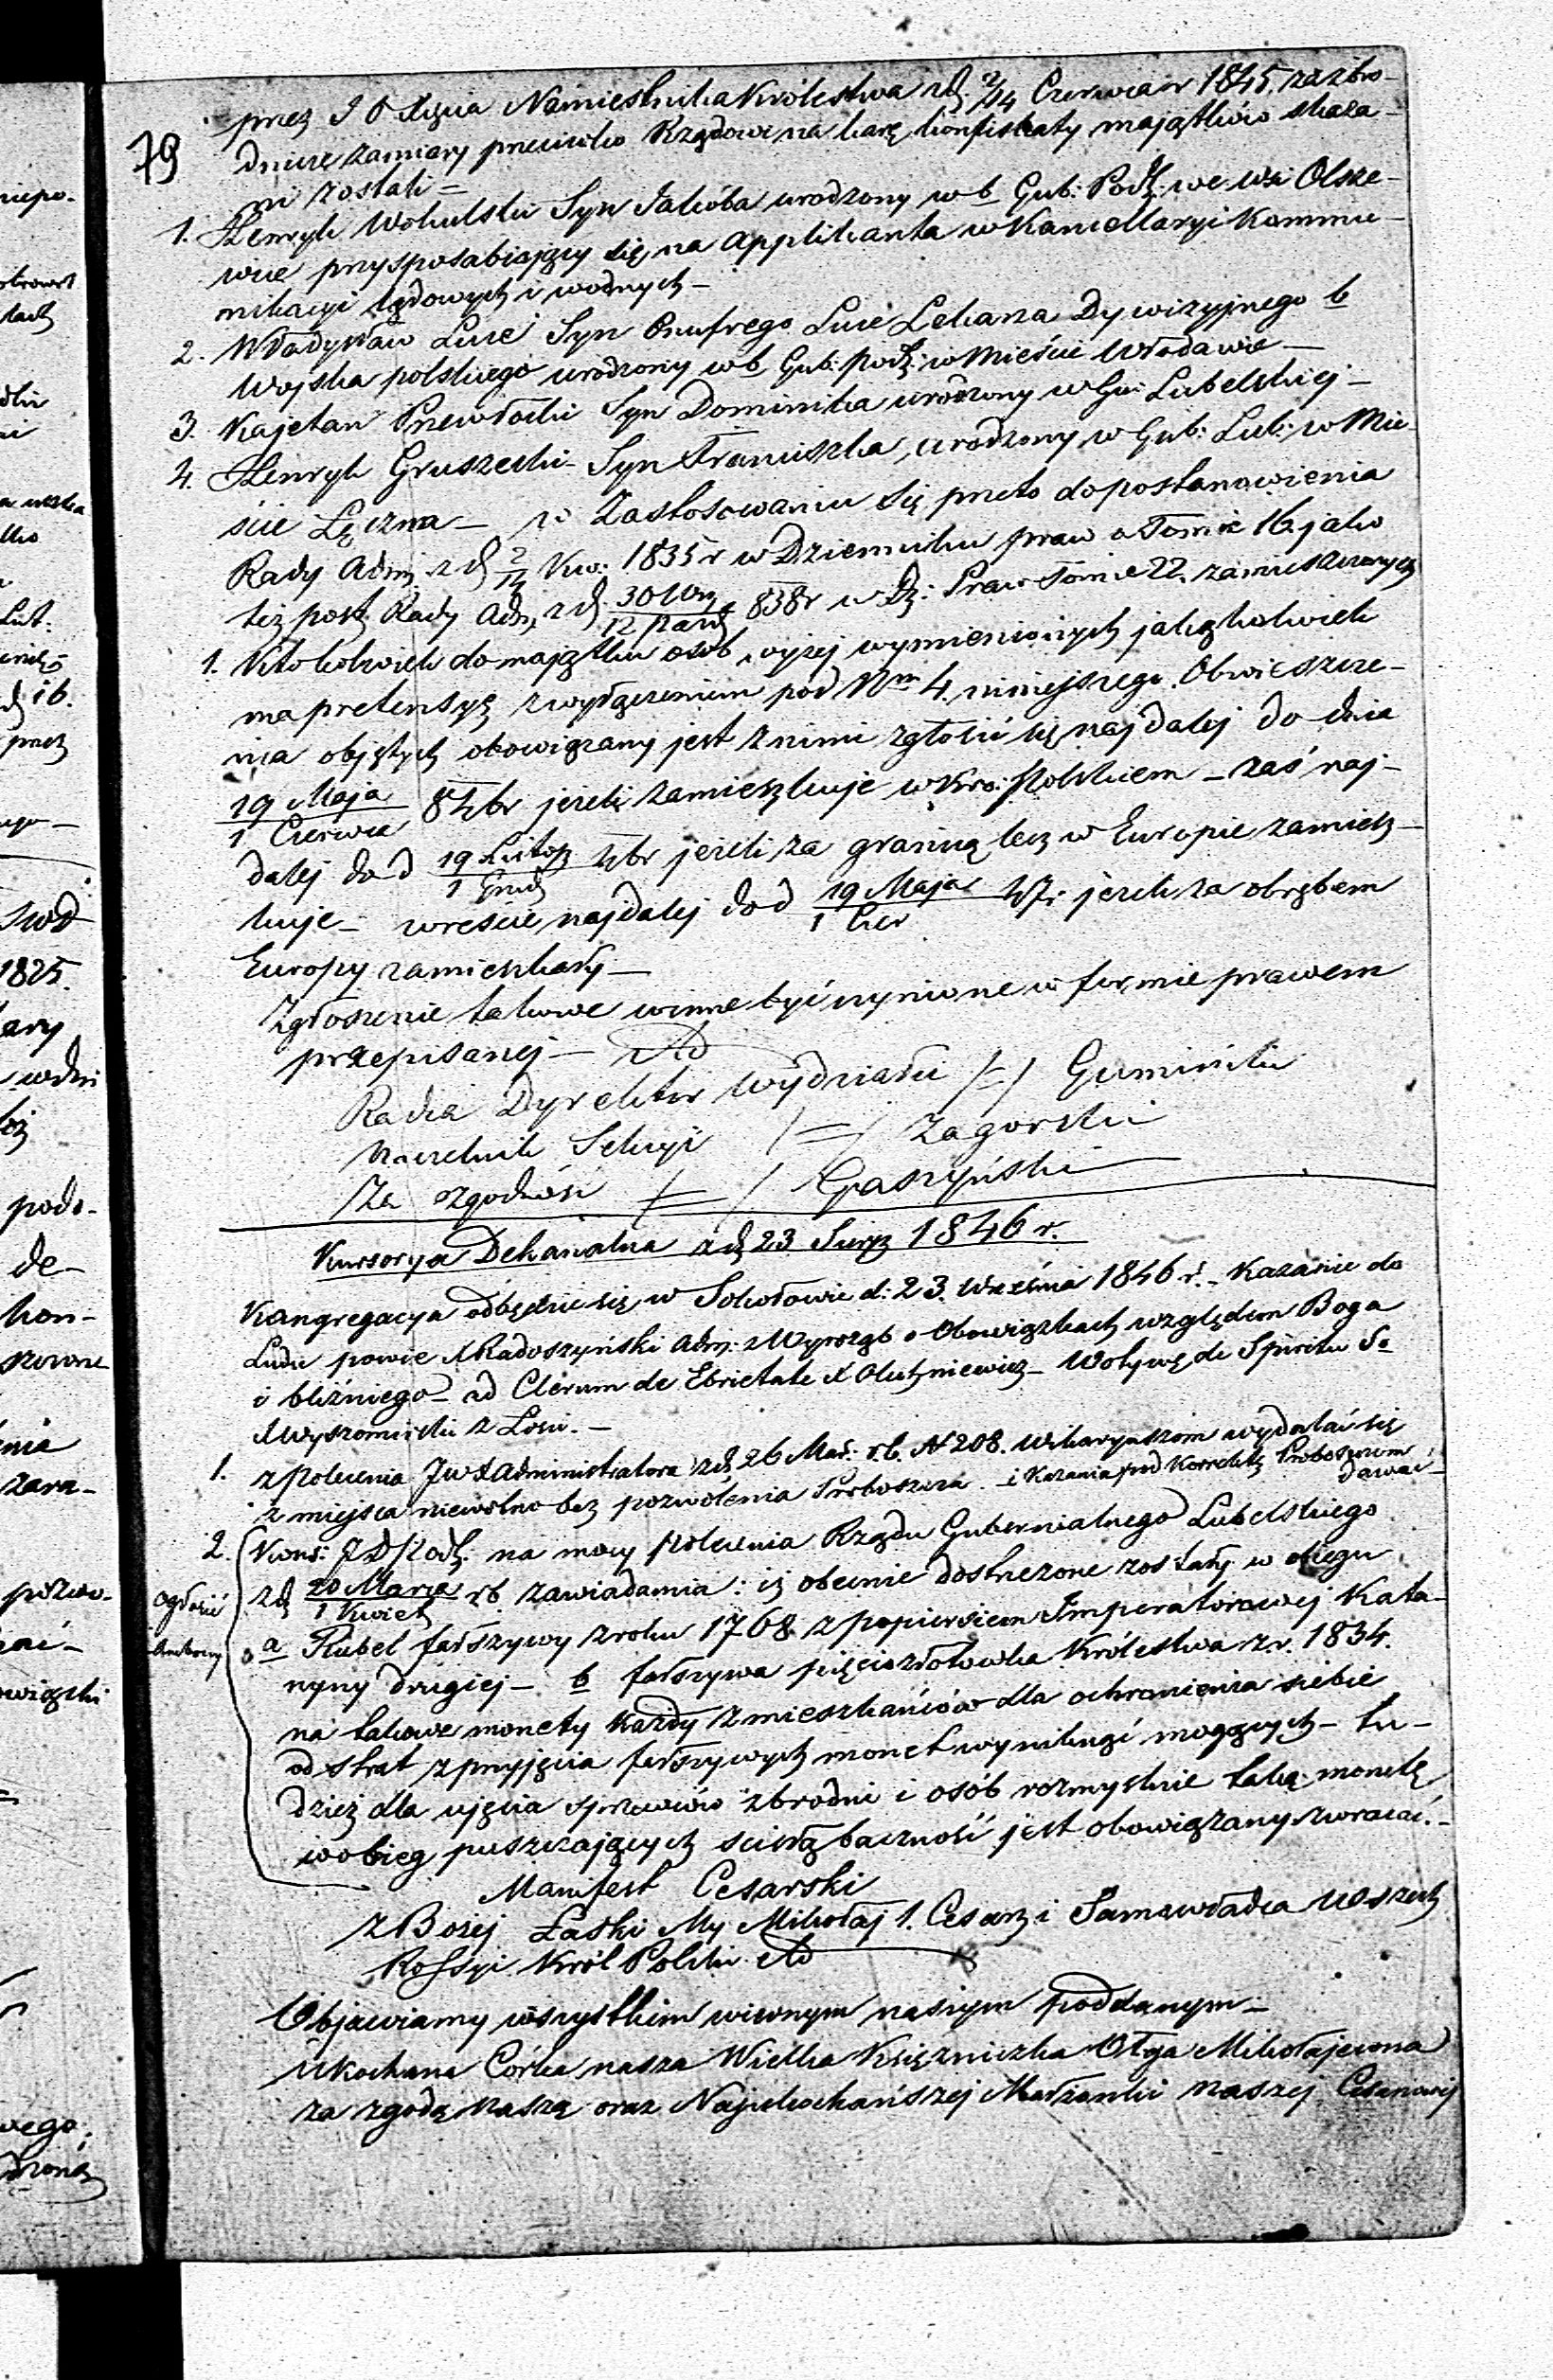 79
przez J O Xięcia Namiestnika Królestwa z d. 2/14 Czerwca r 1845. za zbro-
dnicze zamiary przeciwko Rządowi na karę konfiskaty majątków skaza-
ni zostali =
1. Henryk Wohulski Syn Jakóba urodzony w b Gub: Podl: we wsi Olsze-
wice przysposabiający się na Applikanta w Kancellaryi Kommu-
nikacyi lądowych i wodnych -
2. Władysław Luie Syn Onufrego Luie Lekarza Dywizyjnego b
Wojska polskiego urodzony w b Gub: podl: w Mieście Włodawie -
3. Kajetan Przewłocki Syn Dominika urodzony w Gu: Lubelskiej -
4. Henryk Gruszecki - Syn Franciszka, urodzony w Gub: Lub: w Mie-
ście Łęczna - w Zastosowaniu się przeto do postanowienia
Rady Adm: z d 2/14 Kw: 1835 r w Dzienniku praw Tomie 16. jako
też post: Rady Adm: z d. 30 Wrz/12 Paźd 838 r w Dz: Praw Tomie 22. zamieszczonych
1. Ktokolwiek do majątku osób wyżej wymienionych jakąkolwiek
ma pretensyą z wyłączeniem pod Nm 4. niniejszego Obwieszcze-
nia objętych obowiązany jest z nimi zgłosić się najdalej do dnia
19 Maja/1 Czerwca 846 r jeżeli zamieszkuje w Kró: Polskiem - zaś naj-
dalej do d 19 Listop/1 Grud 46 r jeżeli za granicą lecz w Europie zamiesz-
kuje - wreście najdalej do d 19 Maja/1 Czer 47 r jeżeli za obrębem
Europy zamieszkały -
Zgłoszenie takowe winne być uczynione w formie prawem
przepisanej -
Radca Dyrektor Wydziału /=/ Gumiński
Naczelnik Sekcyi /=/ Zagorski
Za zgodność /=/ Gaszyński
Kursorya Dekanalna z d 23 Sierp 1846 r.
Kongregacya odbędzie się w Sokołowie d: 23. Września 1846 r. - Kazanie do
Ludu powie X Radoszyński Adm: z Wyrozęb o Obowiązkach względem Boga
i bliźniego - ad Clerum de Ebrietate X Olutyniewicz - Wotywę de Spiritu So
X Wyszomirski z Łosic. -
1. z polecenia JW X Administratora z d 26 Mar: r.b. N 208. Wikaryuszom wydalać się
z miejsca niewolno bez pozwolenia Proboszcza. - i Kazania pod Korrektę Proboszczom
dawać -
2. Kons: J D Podl: na mocy polecenia Rządu Gubernialnego Lubelskiego
z d 20 Marca/1 Kwiet rb zawiadamia: iż obecnie dostrzeżone zostały w obiegu
Ogłosić
a Rubel fałszywy z roku 1768 z popiersiem Imperatorowej Kata-
rzyny drugiej - b fałszywa pięciozłotowka Królestwa z r. 1834.
na takowe monety każdy z mieszkańców dla ochronienia siebie
od strat z przyjęcia fałszywych monet wyniknąć mogących - tu-
dzież dla ujęcia sprawców zbrodni i osób rozmyślnie taką monetę
w obieg puszczających scisłą baczność jest obowiązany zwracać. -
Manifest Cesarski
z Bożej Łaski My Mikołaj 1. Cesarz i Samowładca Wszech
Rossyi Król Polski
Objawiamy wszystkim wiernym naszym poddanym -
Ukochana Córka nasza Wielka Księżniczka Olga Mikołajewna
za zgodą naszą oraz Najukochańszej Małżonki naszej Cesarzowej